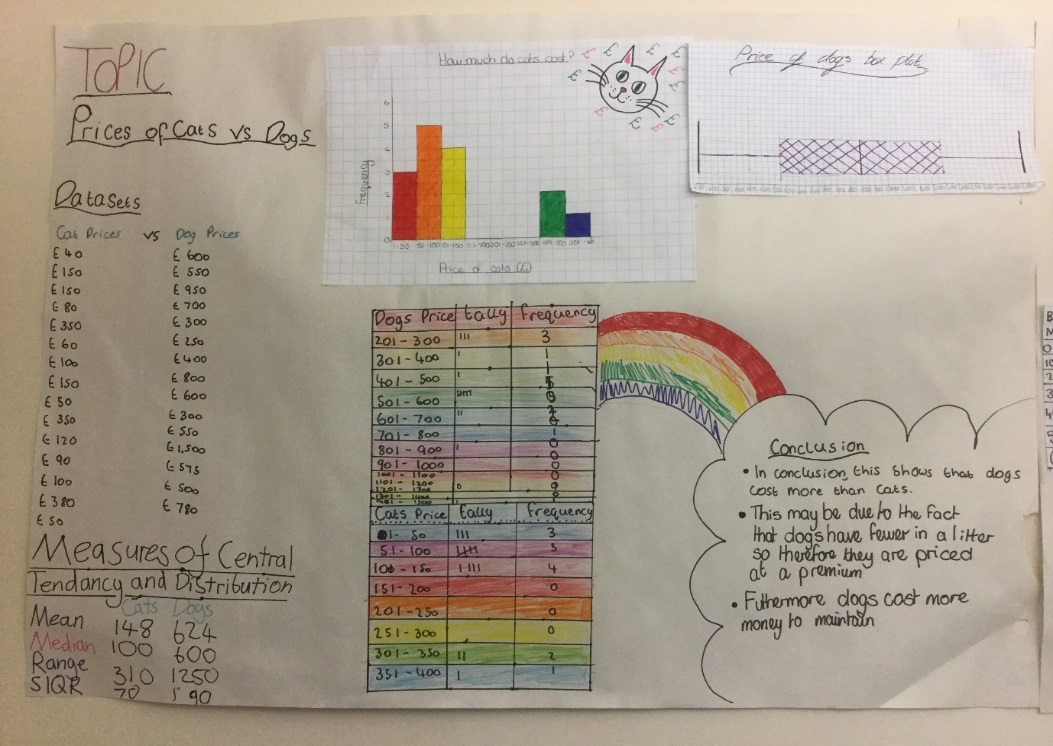 TOPIC
Prices of Cats vs Dogs
Datasets
Cat Prices vs Dog Prices
£40 £600
£150 £550
£150 £950
£80 £700
£350 £300
£60 £250
£100 £400
£150 £800
£50 £600
£350 £300
£120 £550
£90 £1,500
£100 £575
£380 £500
£50 £780
Measures of Central
Tendancy and Distribution
Cats Dogs
Mean 148 624
Median 100 600
Range 310 1250
SIQR 70 190
How much do cats cost?
£ £ £ £ £ £ £ £ £ £
Frequency
6
5
4
3
2
1
0
Price of cats (£)
Price of dogs box plot
Dogs Price tally frequency
201-300 3
301-400 1
401-500 1
501-600
601-700
701-800 1
801-900 0
901-1000 0
1001-1100 0
1101-1200
Cats Price tally frequency
1-50 3
51-100 5
100-150 4
151-200 0
201-250 0
251-300 0
301-350 2
351-400 1
Conclusion
• In conclusion this shows that dogs
cost more than cats.
• This may be due to the fact
that dogs have fewer in a litter
so therefore they are priced
at a premium
• Futhermore dogs cost more
money to maintain